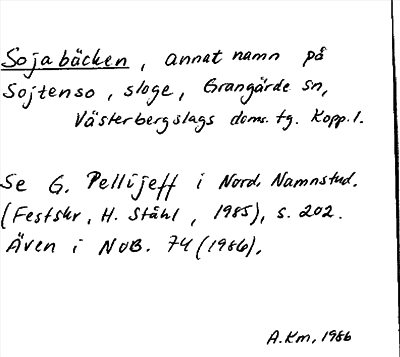 Sojabäcken, annat namn på
Sojtenso, sloge, Grangärde sn,
Västerbergslags doms. tg. Kopp. l.
Se G. Pellijeff i Nord. Namnstud.
(Festskr, H. Ståhl, 1985), s. 202.
Även i NoB. 74 (1986).
A.Km, 1986